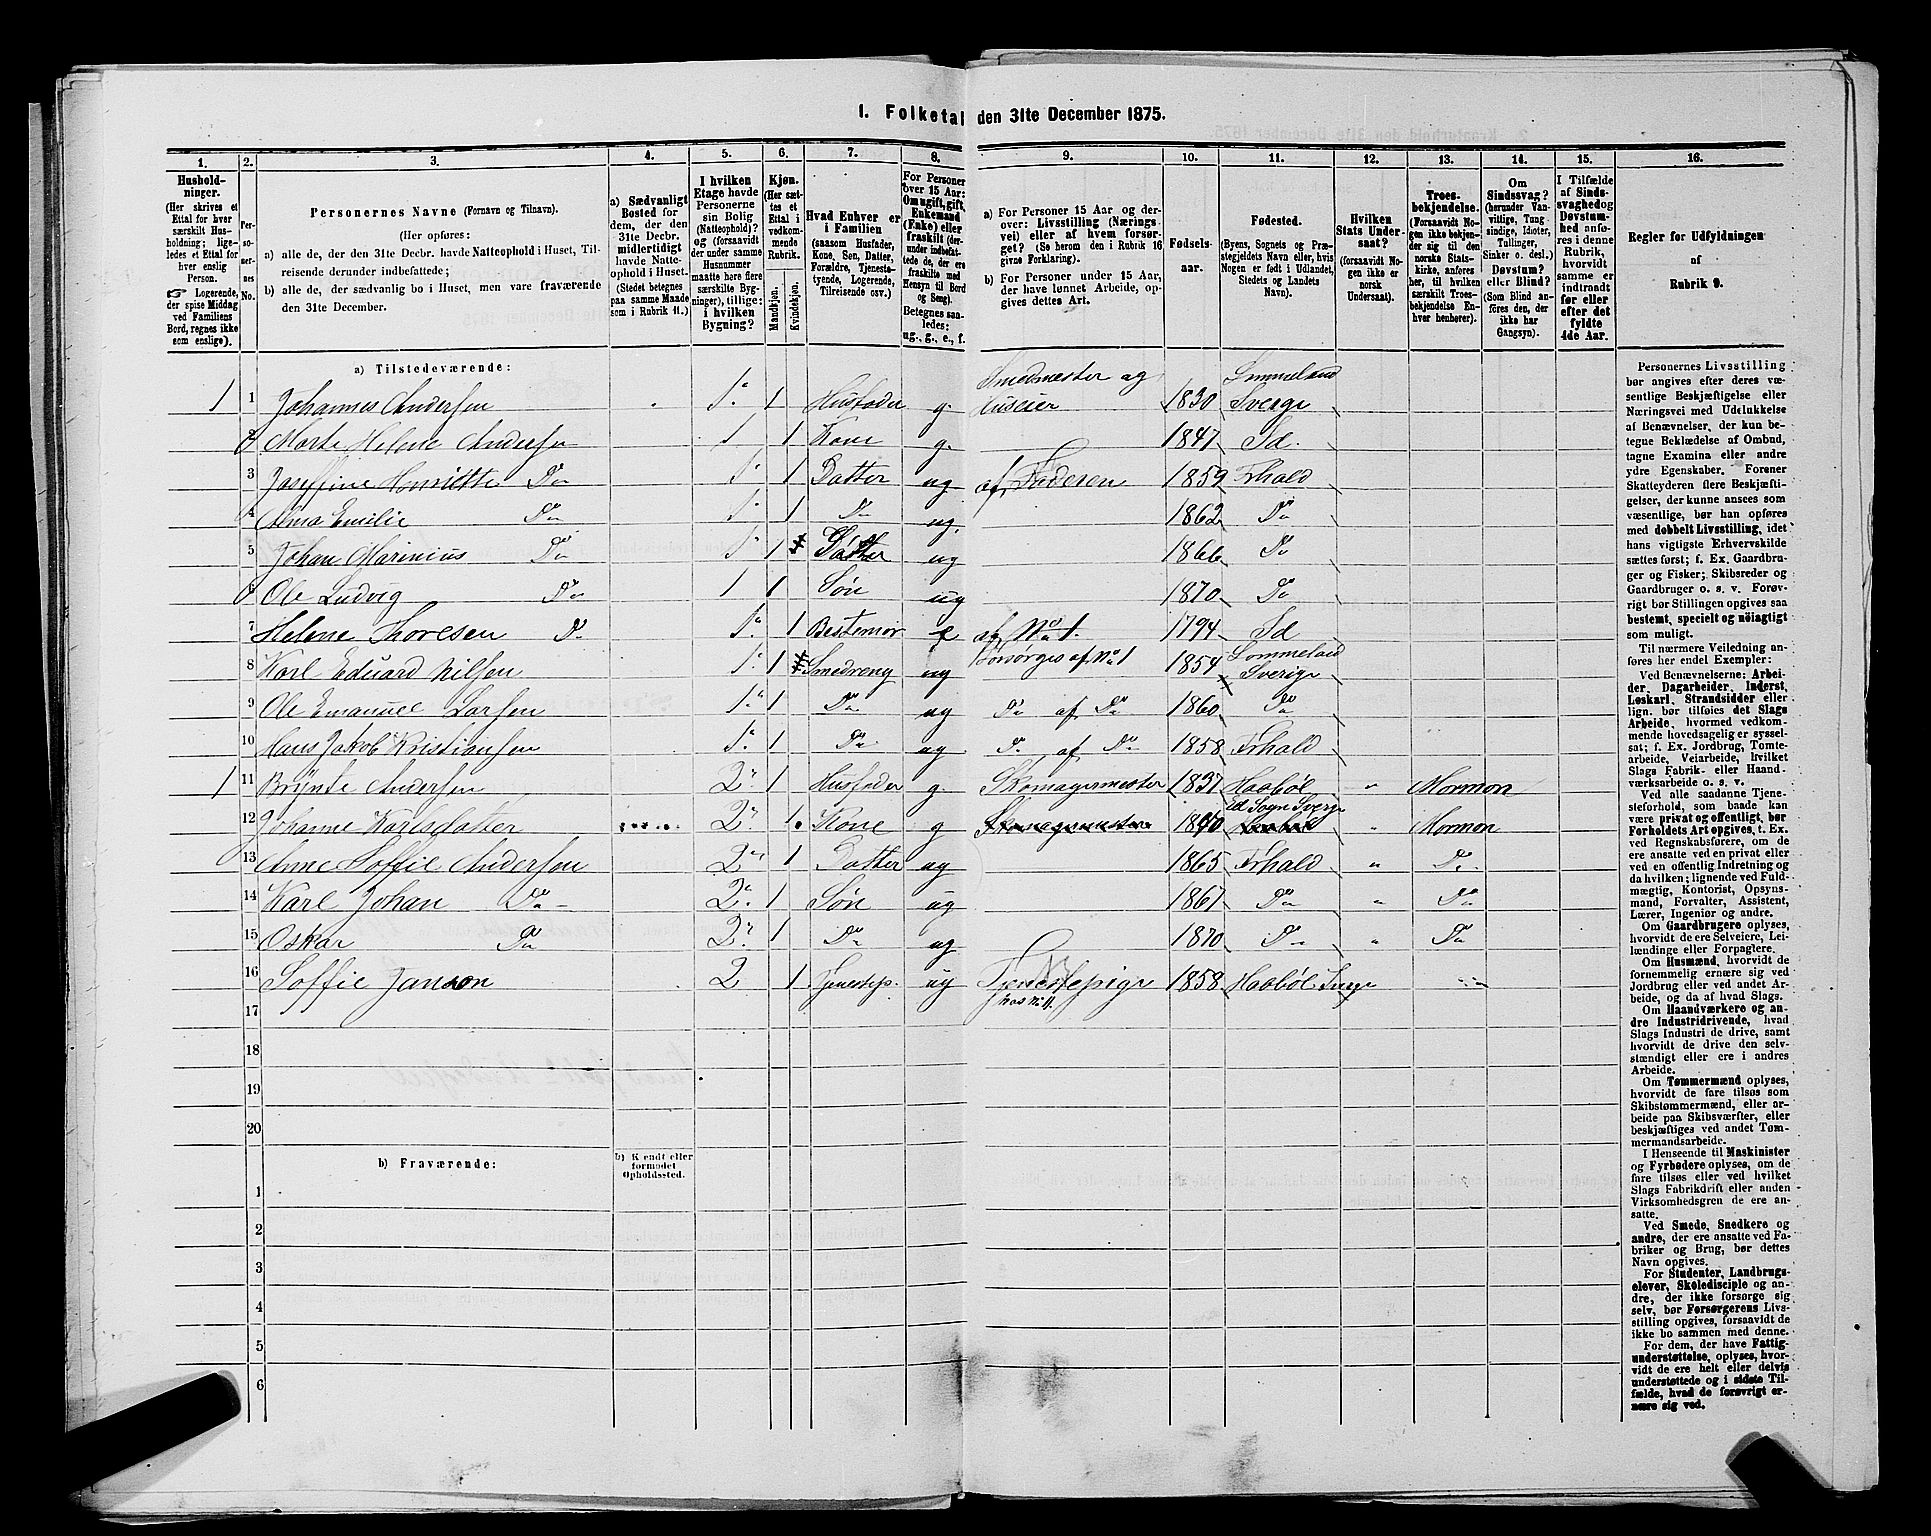 I. Folketal den 31te December 1875.
1. 2. 3. 4. 5. 6. 7. 8. 9. 10. 11. 12. 13. 14. 15. 16.
Husholdninger.
(Her skrives et
Ettal for hver
særskilt Husholdning;
ligeledes et Ettal for
hver enslig
Person.
☞ Logerende,
der spise Middag
ved Familiens
Bord, regnes ikke
som enslige).
Personernes No.
Personernes Navne (Fornavn og Tilnavn).
(Her opføres:
a) alle de, der den 31te Decbr. havde Natteophold i Huset, Tilreisende derunder indbefattede;
b) alle de, der sædvanlig bo i Huset, men vare fraværende
den 31te December.
a) Sædvanligt
Bosted for
dem, der den
31te Decbr.
midlertidigt
havde Natteophold i Huset.
(Stedet betegnes
paa samme Maade
som i Rubrik 11.)
I hvilken
Etage havde
Personerne
sin Bolig
(Natteophold)?
og (forsaavidt
der under samme
Husnummer
maatte være flere
særskilte Bygninger), tillige:
i hvilken
Bygning?
Kjøn.
(Her sættes et
Ettal i
vedkommende
Rubrik.
Mandkjøn. Kvindekjøn.
Hvad Enhver er
i Familien
(saasom Husfader,
Kone, Søn, Datter,
Forældre, Tjenestetyende, Logerende,
Tilreisende osv.)
For Personer
over 15 Aar:
Om ugift, gift,
Enkemand
(Enke) eller
fraskilt
Betegnes saaledes:
ug., g., e., f.
a) For Personer 15 Aar og derover: Livsstilling (Næringsvei) eller af hvem forsørget? (Se herom den i Rubrik 16
givne Forklaring).
b) For Personer under 15 Aar,
der have lønnet Arbeide, opgives dettes Art.
Fødselsaar.
Fødested.
(Byens, Sognets og Præstegjeldets Navn eller, hvis
Nogen er født i Udlandet,
Stedets og Landets
Navn).
Hvilken
Stats Undersaat?
(forsaavidt Nogen ikke er
norsk
Undersaat).
Troesbekjendelse.
(Forsaavidt Nogen ikke bekjender sig til den
norske Statskirke, anføres
her, til hvilken
særskilt Troesbekjendelse Enhver henhører).
Om
Sindssvag?
(herunder Vanvittige, Tungsindige, Idioter,
Tullinger,
Sinker o. desl.)
Døvstum?
eller Blind?
(Som Blind anføres den, der
ikke har
Gangsyn).
I Tilfælde
af Sindssvaghed og
Døvstumhed anføres i denne
Rubrik,
hvorvidt
samme er
indtraadt
før eller
efter det
fyldte
4de Aar.
Regler for Udfyldningen
af
Rubrik 9.
a) Tilstedeværende:
1 1 Johannes Andersen 1. 1 Husfader g. Smedmester og Huseier 1830 Sverige
2 Marte Helene Andersen 1 1 Kone g. 1847 Id.
3 Joseffine Henriette Do 1. 1 Datter ug af Faderen 1859 Frhald
4 Alma Emilie Do 1. 1 Do ug. 1862 Do
5 Johan Marinius Do 1 1 ug 1866 Do
6 Ole Ludvig Do 1 1 Søn ug 1870 Do
7 Helene Thoresen Do 1. 1 Bestemor e af No 1. 1794 Id
8 Karl Eduard Nilsen 1. 1 Smedreng ug forsørges af No 1 1854 Sverige
9 Ole Emanuel Larsen 1. 1 Do ug Do af Do 1860 Do
10 Hans Jakob Kristiansen 1. 1 Do ug Do af Do 1858 Frhald
1 11 Brynte Andersen 2. 1 Husfader g. Skomagermester 1837 Haabøl " Mormon
12 Johanne Karlsdatter 2. 1 Kone g Skomagermester 1840 Sogn Sverge " Mormon
13 Anne Soffie Andersen 2. 1 Datter ug 1865 Frhald " Do
14 Karl Johan Do 2. 1 Søn ug 1867 Do " Do
15 Oskar Do 2. 1 Do ug 1870 Do " Do
16 Soffie Janson 2 1 Tjenestep. ug Tjenestepige hos No 11. 1858 Haabøl Sverge
17
18
19
20
b) Fraværende: b) Kjendt eller
formodet
Opholdssted.
1
2
3
4
5
6
Personernes Livsstilling
bør angives efter deres væsentlige Beskjæftigelse eller
Næringsvei med Udelukkelse
af Benævnelser, der kun betegne Beklædelse af Ombud,
tagne Examina eller andre
ydre Egenskaber. Forener
Skatteyderen flere Beskjæftigelser, der kunne ansees som
væsentlige, bør han opføres
med dobbelt Livsstilling, idet
hans vigtigste Erhvervskilde
sættes først; f. Ex. Gaardbruger og Fisker; Skibsreder og
Gaardbruger o. s. v. Forøvrigt bør Stillingen opgives saa
bestemt, specielt og nöiagtigt
som muligt.
Til nærmere Veiledning anføres her endel Exempler:
Ved Benævnelserne: Arbeider, Dagarbeider, Inderst,
Løskarl, Strandsidder eller
lign. bør tilføies det Slags
Arbeide, hvormed vedkommende hovedsagelig er sysselsat; f. Ex. Jordbrug, Tomtearbeide, Veiarbeide, hvilket
Slags Fabrik- eller Haandværksarbeide o. s. v.
Ved alle saadanne Tjenesteforhold, som baade kan
være privat og offentligt, bør
Forholdets Art opgives, t. Ex.
ved Regnskabsførere, om de
ere ansatte ved en privat eller
ved en offentlig Indretning og
da hvilken; lignende ved Fuldmægtig, Kontorist, Opsynsmand, Forvalter, Assistent,
Lærer, Ingeniør og andre.
Om Gaardbrugere oplyses,
hvorvidt de ere Selveiere, Leilændinge eller Forpagtere.
Om Husmænd, hvorvidt de
fornemmelig ernære sig ved
Jordbrug eller ved andet Arbeide, og da af hvad Slags.
Om Haandværkere og andre Industridrivende, hvad
Slags Industri de drive, samt
hvorvidt de drive den selvstændigt eller ere i andres
Arbeide.
Om Tømmermænd oplyses,
hvorvidt de fare tilsøs som
Skibstømmermænd, eller arbeide paa Skibsværfter, eller
beskjæftiges ved andet Tømmermandsarbeide.
I Henseende til Maskinister
og Fyrbødere oplyses, om de
fare tilsøs eller ved hvilket
Slags Fabrikdrift eller anden
Virksomhedsgren de ere ansatte.
Ved Smede, Snedkere og
andre, der ere ansatte ved Fabriker og Brug, bør dettes
Navn opgives.
For Studenter, Landbrugselever, Skoledisciple og andre, der ikke forsørge sig
selv, bør Forsørgerens Livsstilling opgives, forsaavidt de
ikke bo sammen med denne.
For dem, der have Fattigunderstøttelse, oplyses, hvorvidt de ere helt eller delvis
understøttede og i sidste Tilfælde, hvad de forøvrigt ernære sig ved.